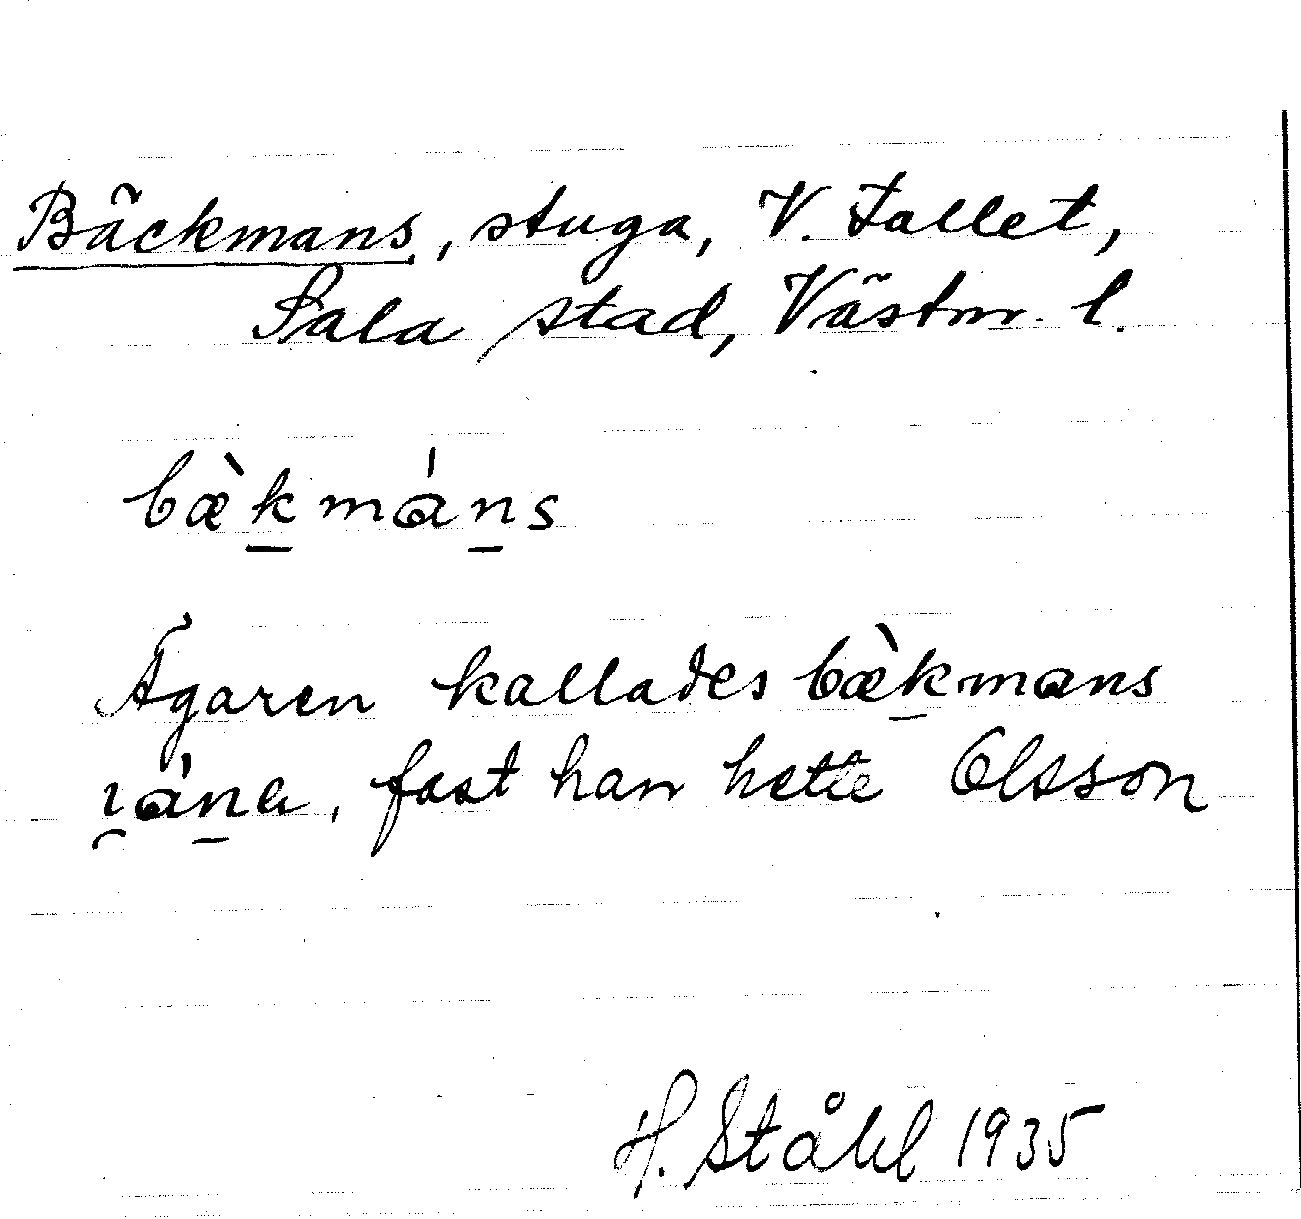 Bäckmans, stuga, V. Fallet,
Sala stad, Västm. l.
bæ̀k̠mɑ́n̠s
Ägaren kallades bæ̀k̠mɑns
ɑ́n̠a, fast han hette Olsson
H. Ståhl 1935